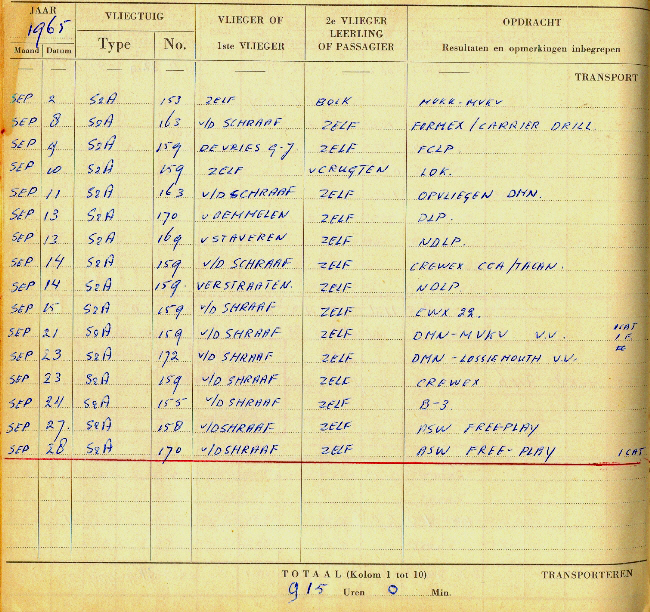 JAAR VLIEGTUIG VLIEGER OF 2e VLIEGER OPDRACHT
1965 LEERLING
Maand Datum Type No. 1ste VLIEGER OF PASSAGIER Resultaten en opmerkingen inbegrepen
TRANSPORT
SEP 2 S2A 153 ZELF BOLK MVKK-MVKV
SEP 8 S2A 163 v/D SCHRAAF ZELF FORMEX/CARRIER DRILL
SEP 9 S2A 159 DEVRIES G-J ZELF FCLP.
SEP 10 S2A 159 ZELF vCRUGTEN LOK.
SEP 11 S2A 163 v/DSCHRAAF ZELF OPVLIEGEN DMN.
SEP 13 S2A 170 v DEMMELEN ZELF DLP.
SEP 13 S2A 169 v STAVEREN ZELF NDLP.
SEP 14 S2A 159 v/D SCHRAAF ZELF CREWEX CCA/TACAN.
SEP 14 S2A 159. VERSTRAATEN. ZELF NDLP
SEP 15 S2A 159 v/D SHRAAF ZELF EWX 22.
SEP 21 S2A 159 v/D SHRAAF ZELF DMN-MVKV V.V.
SEP 23 S2A 172 v/D SHRAAF ZELF DMN-LOSSIEMOUTH V.V.
SEP 23 S2A 159 v/D SHRAAF ZELF CREWEX
SEP 24 S2A 155 v/D SHRAAF ZELF B-3.
SEP 27. S2A 158 v/DSHRAAF ZELF ASW FREEPLAY
SEP 28 S2A 170 v/DSHRAAF ZELF ASW FREE-PLAY 1 CAT
TOTAAL (Kolom 1 tot 10) TRANSPORTEREN
915 Uren 0 Min.